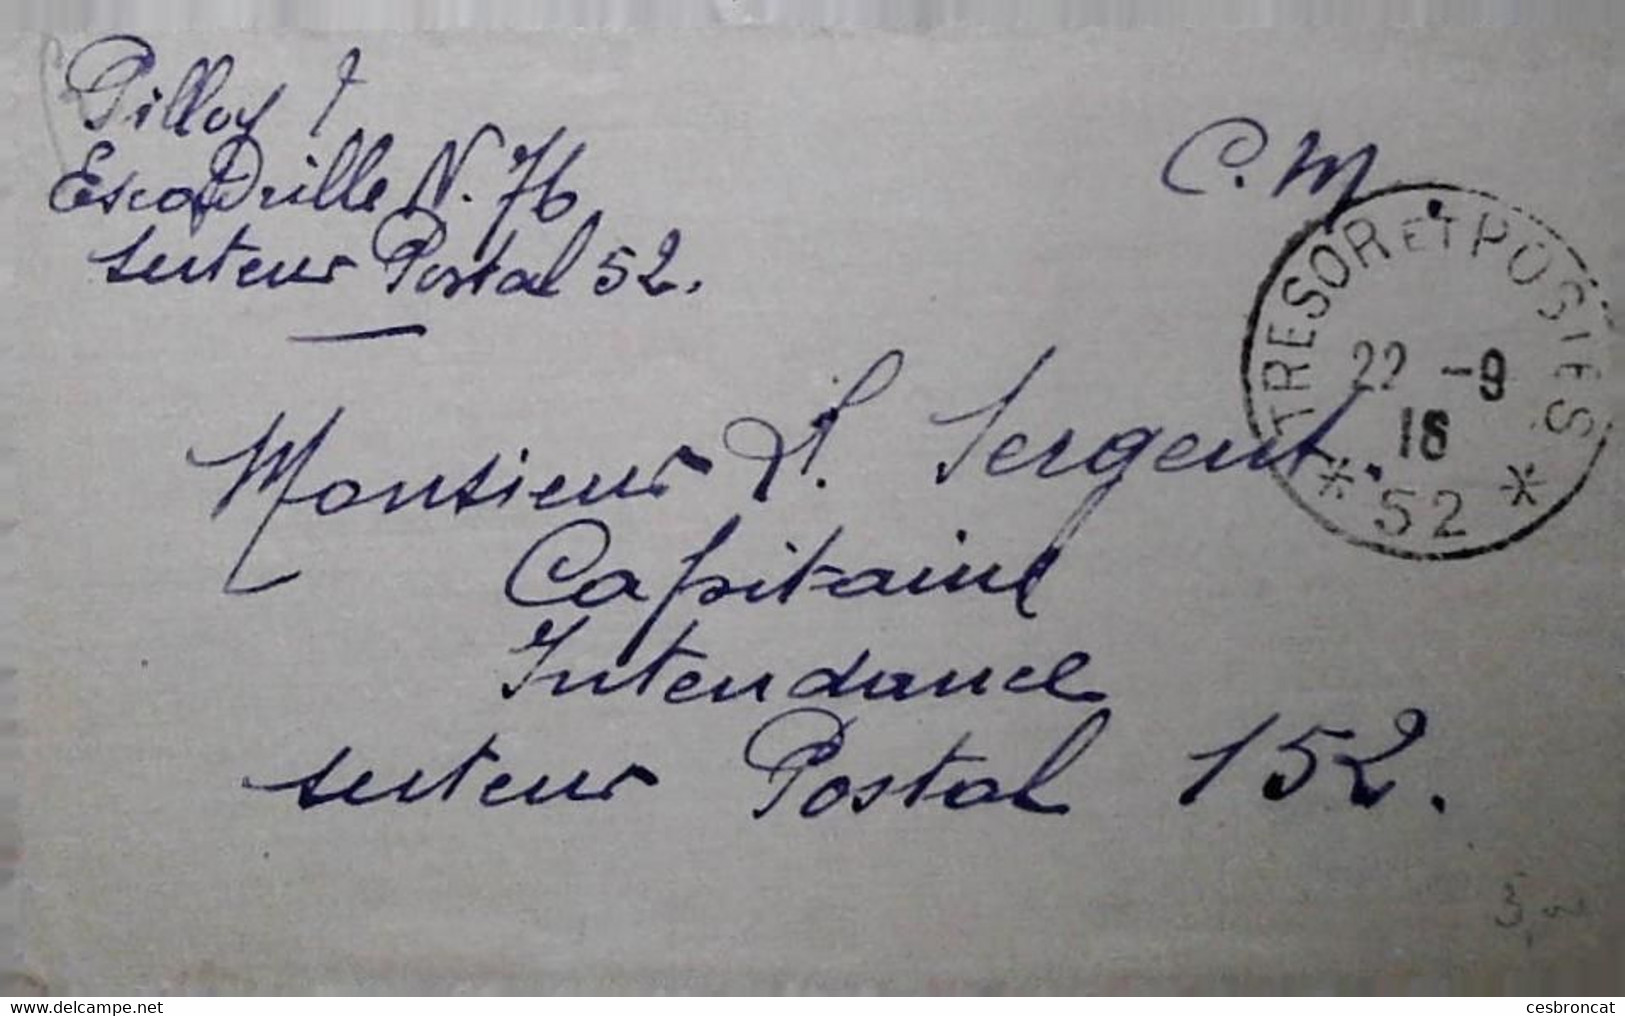 Pilloy
Escadrille N. 76
secteur Postal 52.
C.M
TRESOR ET POSTES
22 -9
16
* 52 *
Monsieur L. Sergent.
Capitaine
Intendance
secteur Postal 152.
Ventes sur www.delcampe.net
cesbroncat